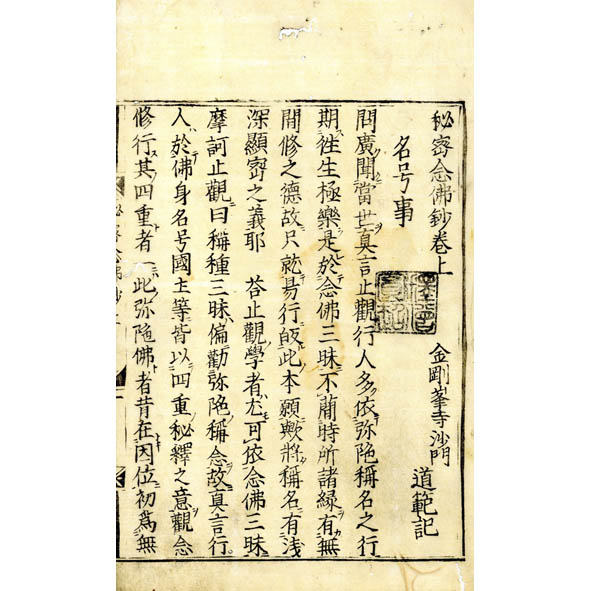 秘密念佛鈔卷上
金剛峯寺沙門
道範記
名号事
問廣聞當世真言止觀行人多依弥陁稱名之行
期往生極樂是於念佛三昧不蕳時所諸縁有無
間修之德故只就易行故此本願歟將稱名有淺
深顯密之義耶　荅止觀學者尤可依念佛三昧
摩訶止觀曰稱種三昧偏勸弥陁稱念故真言行
人於佛身名号國土等皆以四重秘釋之意觀念
修行其四重者一此弥陁佛者昔在因位初為無